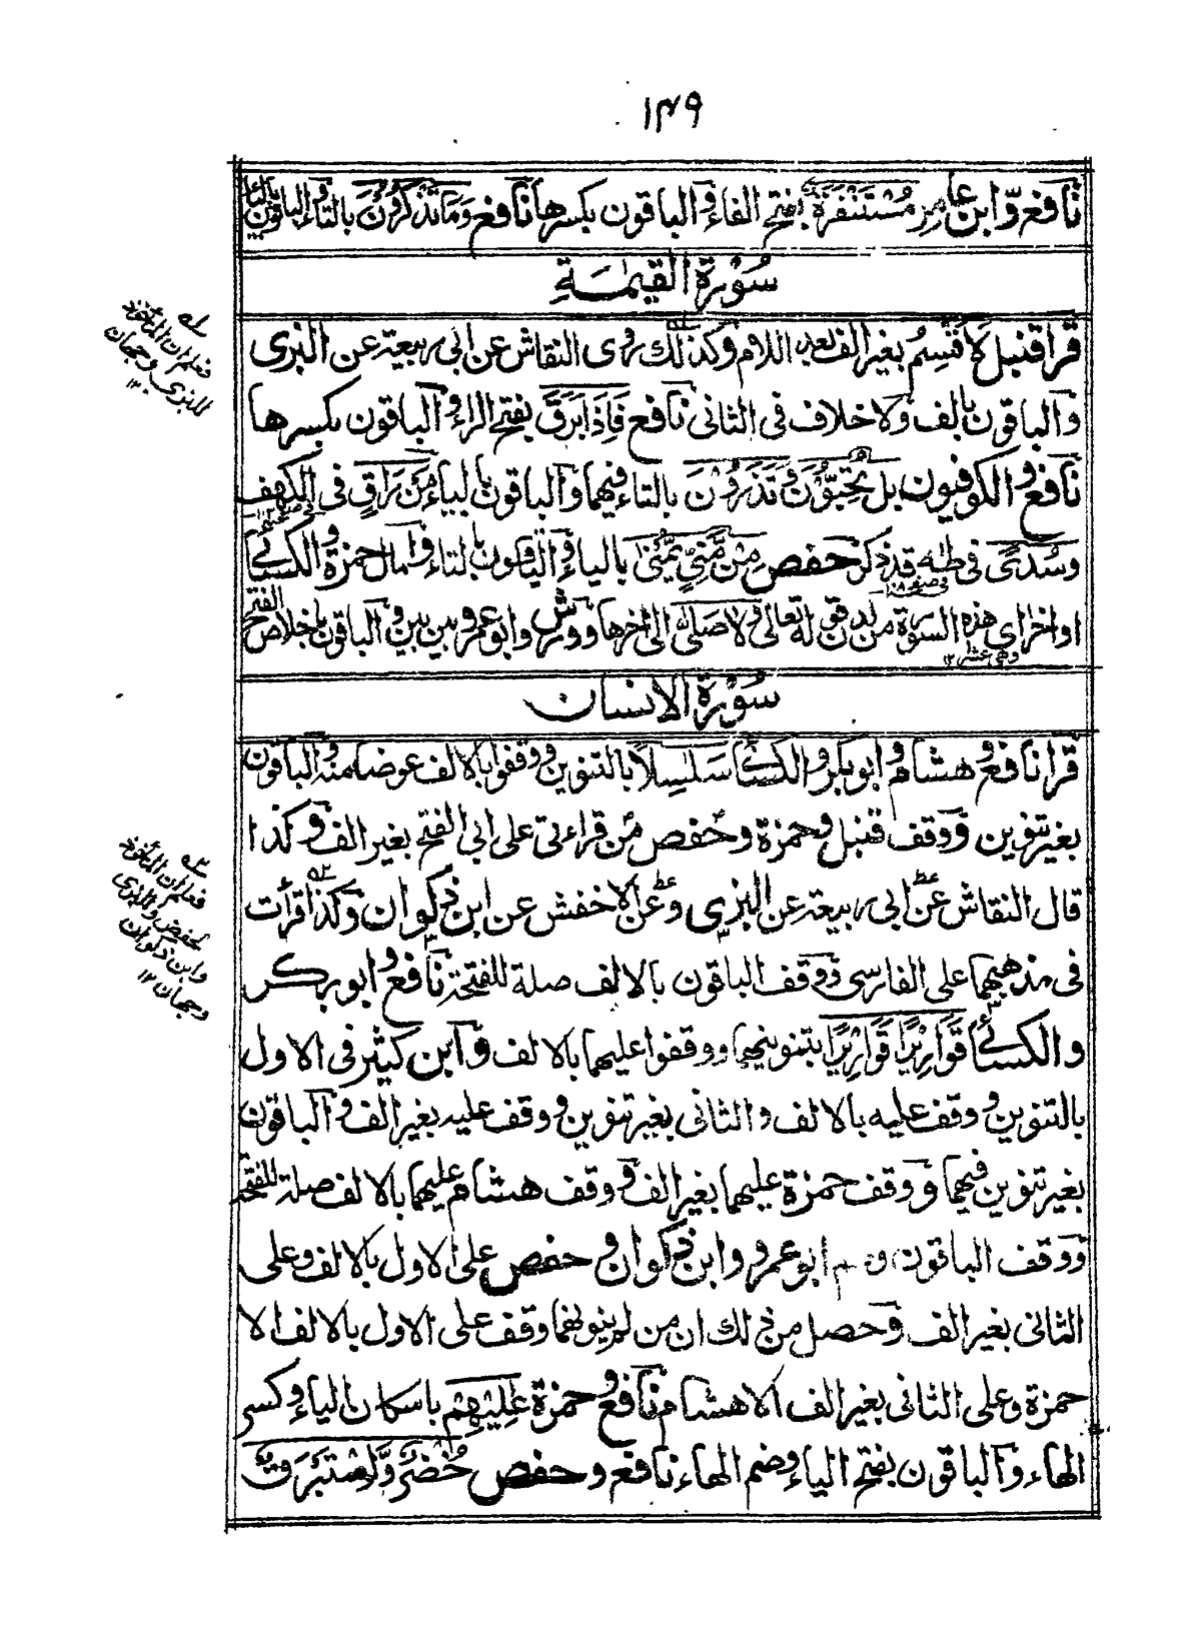 ١٤٩
نافع وابن عامر مُسْتَنْفَرَةٌ بفتح الفاء والباقون بكسرها نافع وَمَا تَذْكُرُوْنَ بالتاء والباقون بالياء
سُوْرَةُ الْقِيٰمَةِ
قرأ قنبل لَاُقْسِمُ بغير الف بعد اللام وكذلك روى النقاش عن ابى ربيعة عن البزى
والباقون بالف ولا خلاف فى الثانى نافع فَاِذَا بَرَقَ بفتح الراء والباقون بكسرها
نافع والكوفيون بل تُحِبُّوْنَ وَتَذَرُوْنَ بالتاء فيهما والباقون بالياء مَنْ رَاقٍ فى الكهف
وسُدًى فى طه قد ذكر حفص مِنْ مَّنِيٍّ يُّمْنٰى بالياء والباقون بالتاء وامال حمزة والكسائى
فى صفحه ١٠٨
اواخر اى هذه السورة من لدن قوله تعالى ولا صَلّٰى الى اٰخرها وورش وابو عمرو بين بين والباقون باخلاص الفتح
وهى عشر ١٢
سُوْرَةُ الْاِنْسَان
قرأ نافع وهشام وابو بكر والكسائى سَلٰسِلًا بالتنوين ووقفوا بالالف عوضا منه والباقون
بغير تنوين ووقف قنبل وحمزة وحفص من قراءتى على ابى الفتح بغير الف وكذا
قال النقاش عن ابى ربيعة عن البزى وعن الاخفش عن ابن ذكوان وكذا قرأت
فى مذهبهما على الفارسى ووقف الباقون بالالف صلة للفتحة نافع وابو بكر
والكسائى قَوَارِيْرًا قَوَارِيْرًا بتنوينهما ووقفوا عليهما بالالف وابن كثير فى الاول
بالتنوين ووقف عليه بالالف والثانى بغير تنوين ووقف عليه بغير الف والباقون
بغير تنوين فيهما ووقف حمزة عليهما بغير الف ووقف هشام عليهما بالالف صلة للفتحة
ووقف الباقون وهم ابو عمرو وابن ذكوان وحفص على الاول بالالف وعلى
الثانى بغير الف وحصل من ذلك ان من لم ينونهما وقف على الاول بالالف الا
حمزة وعلى الثانى بغير الف الا هشام نافع وحمزة عٰلِيْهِمْ باسكان الياء وكسر
الهاء والباقون بفتح الياء وضم الهاء نافع وحفص خُضْرٌ وَّاِسْتَبْرَقٌ
له
فعلم ان المأخوذ
للبزى وجهان
١٢
فعلم ان المأخوذ
لحفص والبزى
وابن ذكوان
وجهان ١٢